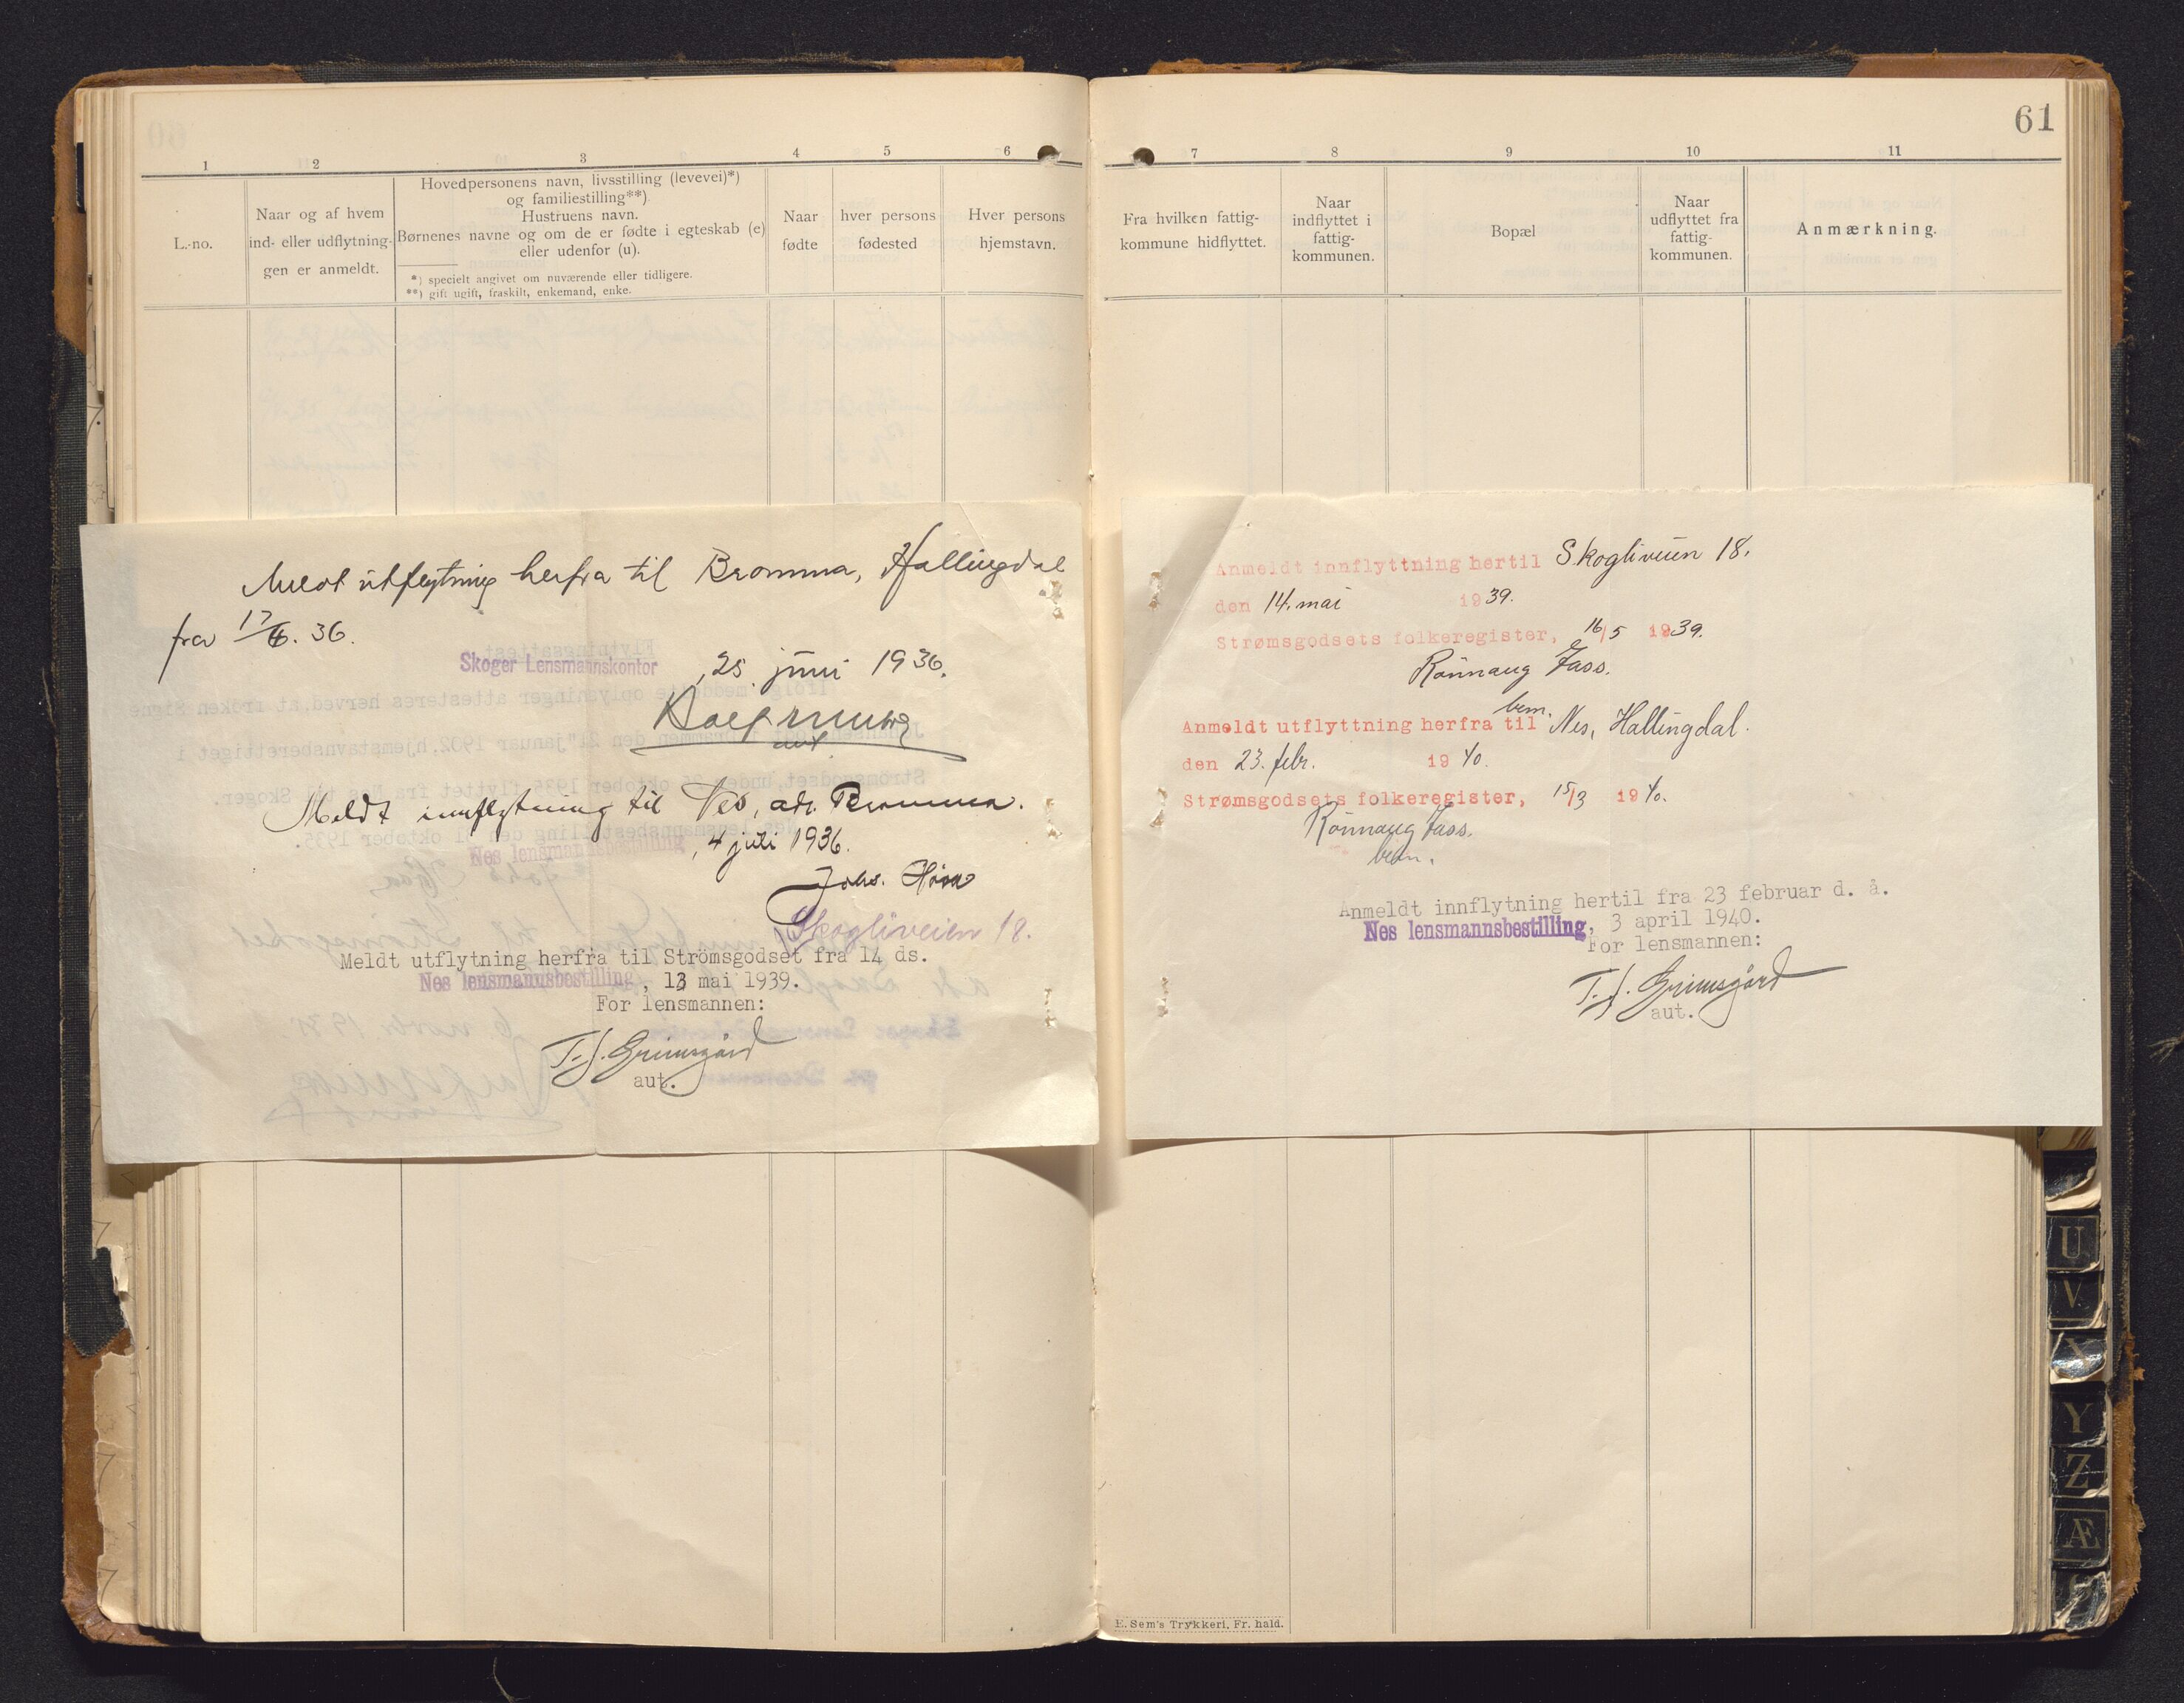 61
1 2 3 4 5 6
L.-no.
Naar og af hvem
ind- eller udflytnin-
gen er anmeldt.
Hovedpersonens navn, livsstilling (levevei)*)
og familiestilling**).
Hustruens navn.
Børnenes navne og om de er fødte i egteskab (e)
eller udenfor (u).
*) specielt angivet om nuværende eller tidligere.
**) gift ugift, fraskilt, enkemand, enke.
Naar
fødte
hver persons
fødested
Hver persons
hjemstavn.
7 8 9 10 11
Fra hvilken fattig-
kommune hidflyttet.
Naar
indflyttet i
fattig-
kommunen.
Bopæl
Naar
udflyttet fra
fattig-
kommunen.
Anmærkning.
Meldt utflytning herfra til Bromma, Hallingdal
fra 17/6. 36.
Skoger Lensmannskontor, 25. juni 1936.
aut
Meldt innflytning til Nes, adr. Bromma.
Nes lensmannsbestilling, 4 juli 1936.
Johs. Hova
Skogliveien 18.
Meldt utflytning herfra til Strömsgodset fra 14 ds.
Nes lensmannsbestilling, 13 mai 1939.
For lensmannen:
T. J. Grimsgård
aut.
Anmeldt innflyttning hertil Skogliveien 18.
den 14. mai 1939.
Strømsgodsets folkeregister, 16/5 1939.
Rönnaug Fass.
bem.
Anmeldt utflyttning herfra til Nes, Hallingdal.
den 23. febr. 1940.
Strømsgodsets folkeregister, 15/3 1940.
Rönnaug Fass.
bem.
Anmeldt innflytning hertil fra 23 februar d. å.
Nes lensmannsbestilling, 3 april 1940.
For lensmannen:
T. J. Grimsgård
aut.
E. Sem's Trykkeri, Fr. hald.
U
V
X
Y
Z
Æ